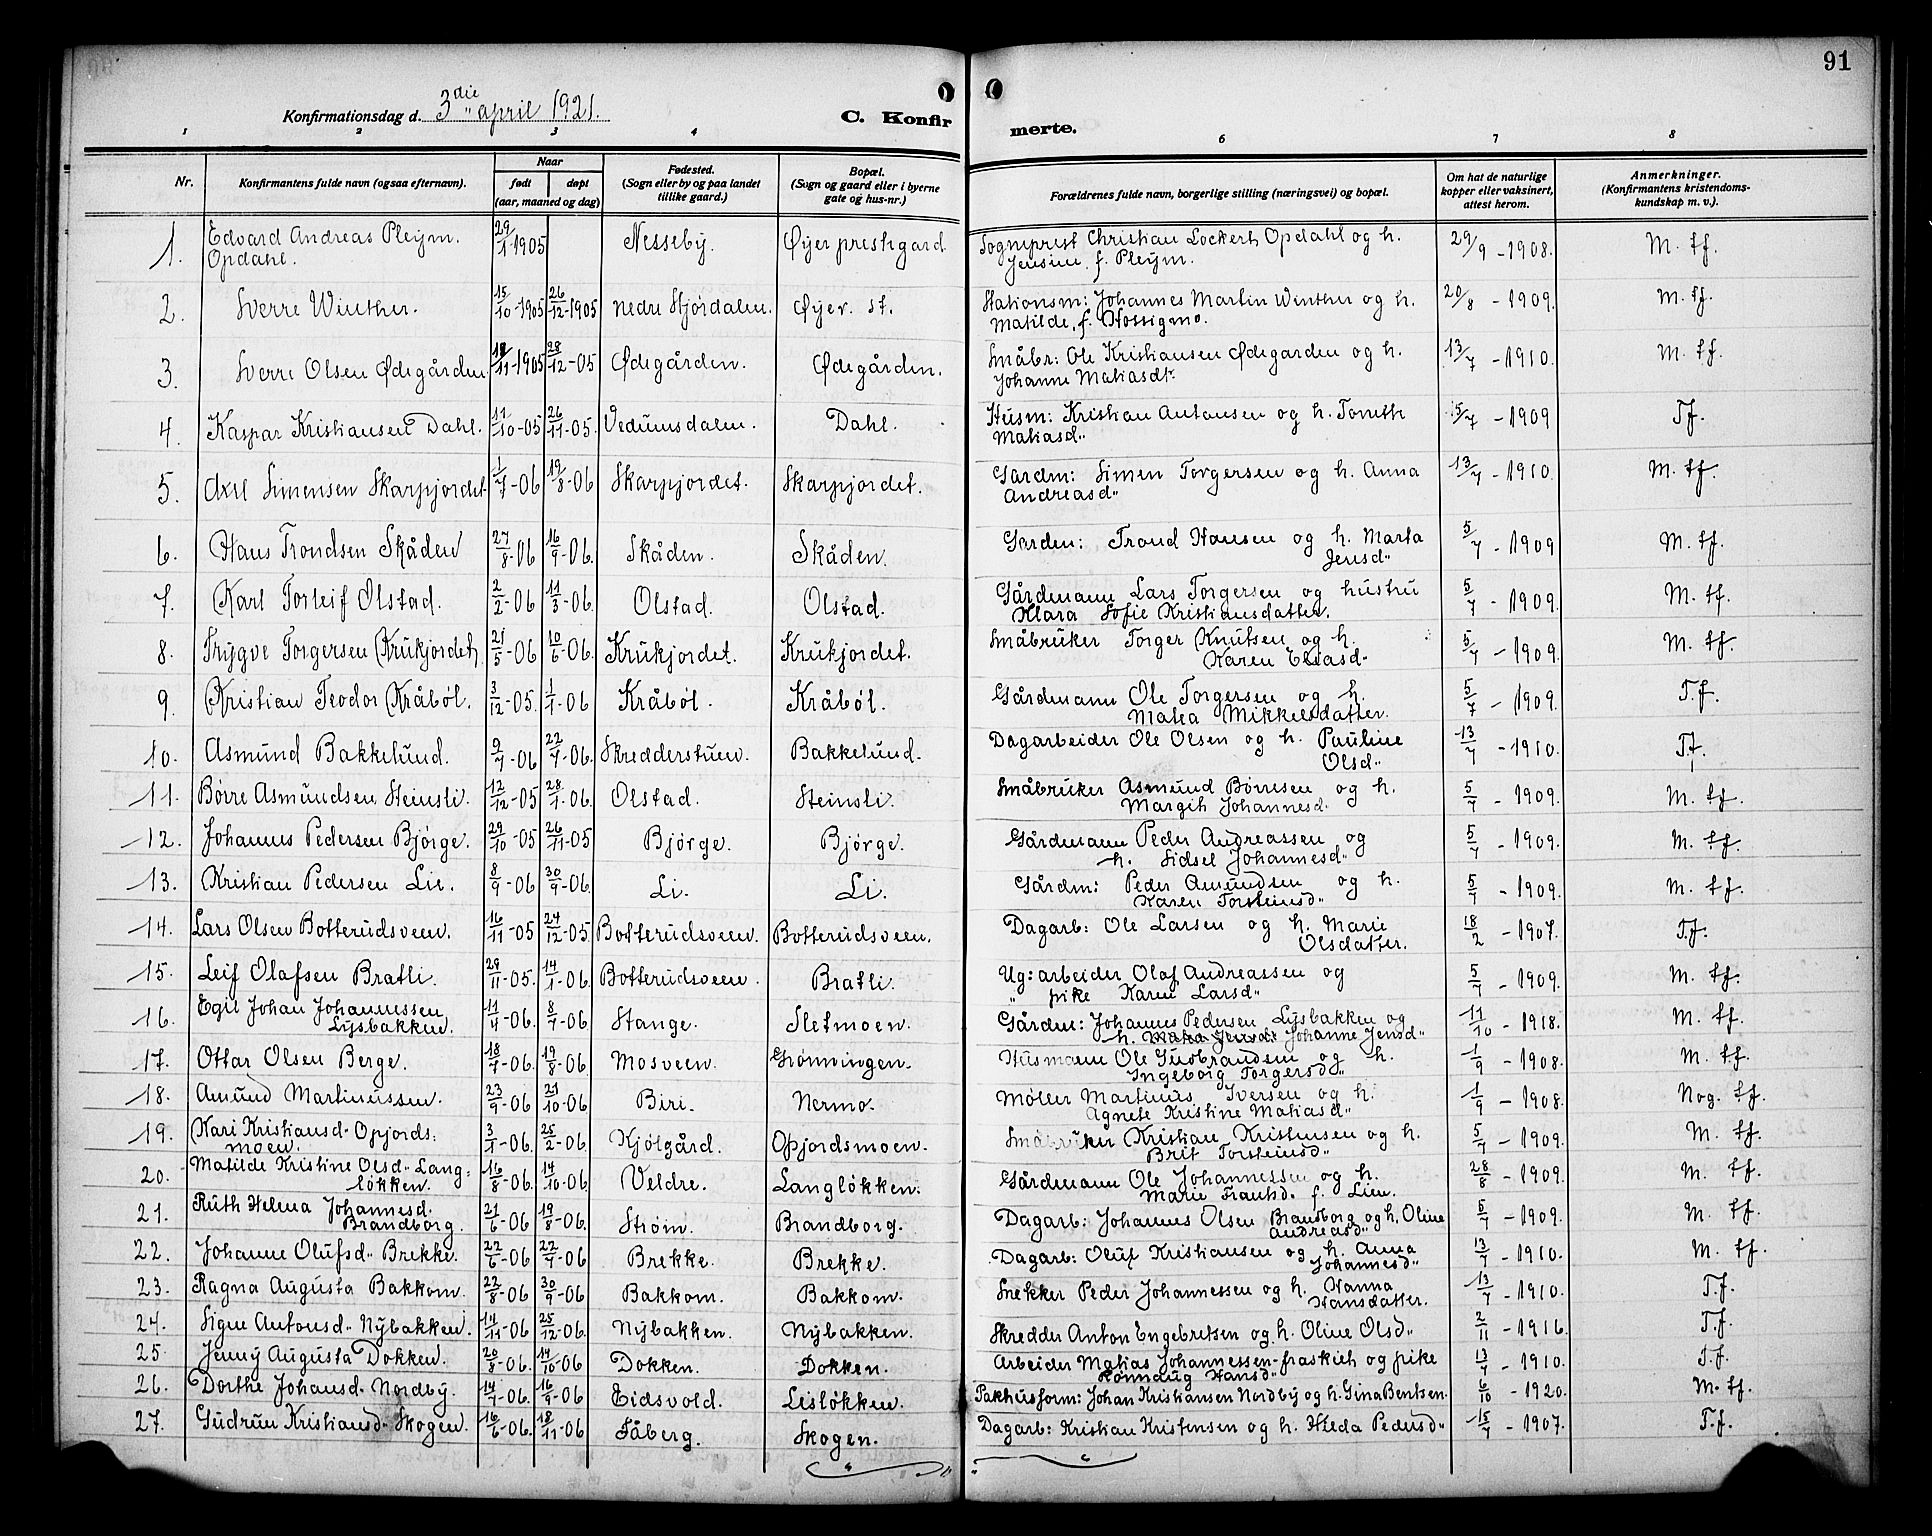 91
Konfirmationsdag d. 3die april 1921.
C. Konfirmerte.
1 2 3 4 5 6 7 8
Nr. Konfirmantens fulde navn (ogsaa efternavn). Naar født døpt (aar, maaned og dag) Fødested. (Sogn eller by og paa landet tillike gaard.) Bopæl. (Sogn og gaard eller i byerne gate og hus-nr.) Forældrenes fulde navn, borgerlige stilling (næringsvei) og bopæl. Om hat de naturlige kopper eller vaksinert, attest herom. Anmerkninger. (Konfirmantens kristendomskundskap m. v.).
1. Edvard Andreas Pleym. Opdahl. 29/1-1905 Nesseby. Øyer prestegard Sogneprest Christian Lockert Opdahl og h. Jensine, f. Pleym. 29/9-1908. M. tf.
2. Sverre Winther. 15/10-1905 26/12-1905 nedre Stjørdalen. Øyer. st. Stationsm: Johannes Martin Winther og h. Matilde, f. 20/8-1909. M. tf.
3. Sverre Olsen Ødegården 11-1905 28/12-05 Ødegården. Ødegården. Småbr: Ole Kristiansen Ødegarden og h. Johanne Matiasdtr. 13/7-1910. M. tf.
4. Kaspar Kristiansen Dahl. 11/10-05 26/11-05. Vedumsdalen. Dahl. Husm: Kristian Antonsen og h. Tomth Matiasd" 15/7-1909 T.f.
5. Axel Simensen Skarpjordet 1/7-06 19/8-06 Skarpjordet. Skarpjordet. Gardm: Simen Torgersen og h. Anna Andreasd" 13/7-1910. M. tf.
6. Hans Trondsen Skåden 27/8-06 16/9-06. Skåden. Skåden. Garden: Trond Hansen og h. Marta Jensd" 5/7-1909 M. tf.
7. Karl Torleif Olstad. 2/2-06 11/3-06. Olstad. Olstad. Gårdmann Lars Torgersen og hustru Klara Sofie Kristiansdatter. 5/7-1909. M. tf.
8. Trygve Torgersen Krukjordet 21/5-06 10/6-06. Krukjordet. Krukjordet. Småbruker Torger Knutsen og h. Karen Eliasd- 5/7-1909. M. tf.
9. Kristian Teodor Kråbøl. 3/12-05. 1/1-06 Kråbøl. Kråbøl. Gårdmann Ole Torgersen og h. Matea Mikkelsdatter. 5/7-1909. T.f.
10. Asmund Bakkelund. 9/7-06 22/7-06. Skredderstuen. Bakkelund. Dagarbeider Ole Olsen og h. Pauline Olsd" 13/7-1910. T.f.
11. Børre Asmundsen Steinsli. 12/12-05 28/1-06. Olstad. Steinsli. Småbruker Asmund Børresen og h. Margith Johannesd. 5/7-1909. M. tf.
12. Johannes Pedersen Bjørge. 29/10-05 26/11-05 Bjørge. Bjørge. Gårdmann Peder Andreassen og h. Sidsel Johannesd" 5/7-1909. M. tf.
13. Kristian Pedersen Lie. 8/9-06 30/9-06. Li. Li. Gårdm: Peder Amundsen og h. Karen Torsteinsd" 5/7-1909. M. tf.
14. Lars Olsen Botterudsveen. 16/11-05 24/12-05. Botterudsveen. Botterudsveen. Dagarb: Ole Larsen og h. Marie Olsdatter. 18/2-1907. T.f.
15. Leif Olafsen Bratli. 28/11-05. 14/1-06. Botterudsveen. Bratli. Ug: arbeider Olaf Andreassen og " pike Karen Larsd" 5/7-1909. M. tf.
16. Egil Johan Johannessen Lysbakken. 11/4-06. 8/7-06 Stange. Sletmoen. Gården: Johannes Pedersen Lysbakken og h. Johanne Jensd" 11/10-1918. M. tf.
17. Ottar Olsen Berge. 18/7-06. 19/8-06 Mosveen. Grønningen. Husmann Ole Gudbrandsen og h. Ingeborg Torgersd" 1/9-1908. M. tf.
18. Amund Martinussen. 23/9-06 21/10-06 Biri. Nermo. Møller Martinus Iversen og h. Agnete Kristine Matiasd" 1/9-1908. Nog. tf.
19. Kari Kristiansd- Opjordsmoen. 3/1-06. 25/2-06 Kjølgård. Opjordsmoen. Småbruker Kristian Kristensen og h. Brit Torsteinsd" 5/7-1909. M. tf.
20. Matilde Kristine Olsd" Langløkken. 16/8-06. 14/10-06. Veldre. Langløkken. Gårdmann Ole Johannessen og h. Marie Frantsd. f. Lien. 28/8-1909. M. tf.
21. Ruth Helena Johannesd. Brandborg. 21/6-06 19/8-06. Strøm. Brandborg. Dagarb: Johannes Olsen Brandborg og h. Oline Andreasd" 5/7-1909. M. tf.
22. Johanne Olufsd" Brekke. 22/6-06 22/7-06 Brekke. Brekke. Dagarb: Oluf Kristiansen og h. Anna Johannesd" 13/7-1910. M. tf.
23. Ragna Augusta Bakkom. 22/8-06 30/9-06 Bakkom. Bakkom. Snekker Peder Johannessen og h. Hanna Hansdatter. 13/7-1910. T.f.
24. Signe Antonsd" Nybakken. 14/11-06 25/12-06. Nybakken. Nybakken. Skredder Anton Engebretsen og h. Oline Olsd" 2/11-1916. T.f.
25. Jenny Augusta Dokken. 20/8-06. 14/10-06 Dokken. Dokken. Arbeider Matias Johannessen og pike Rønnaug Hansd" 13/7-1910. T.f.
26. Dorthe Johansd- Nordby. 14/7-06. 16/9-06 Eidsvold. Lisløkken. Pakhusform: Johan Kristiansen Nordby og h. Gina Bentsen. 6/10-1920. M. tf.
27. Gudrun Kristiansd- Skogen. 16/6-06. 18/11-06 Fåberg. Skogen. Dagarb: Kristian Kristensen og h. Hilda Pedersd" 15/7-1907. T.f.